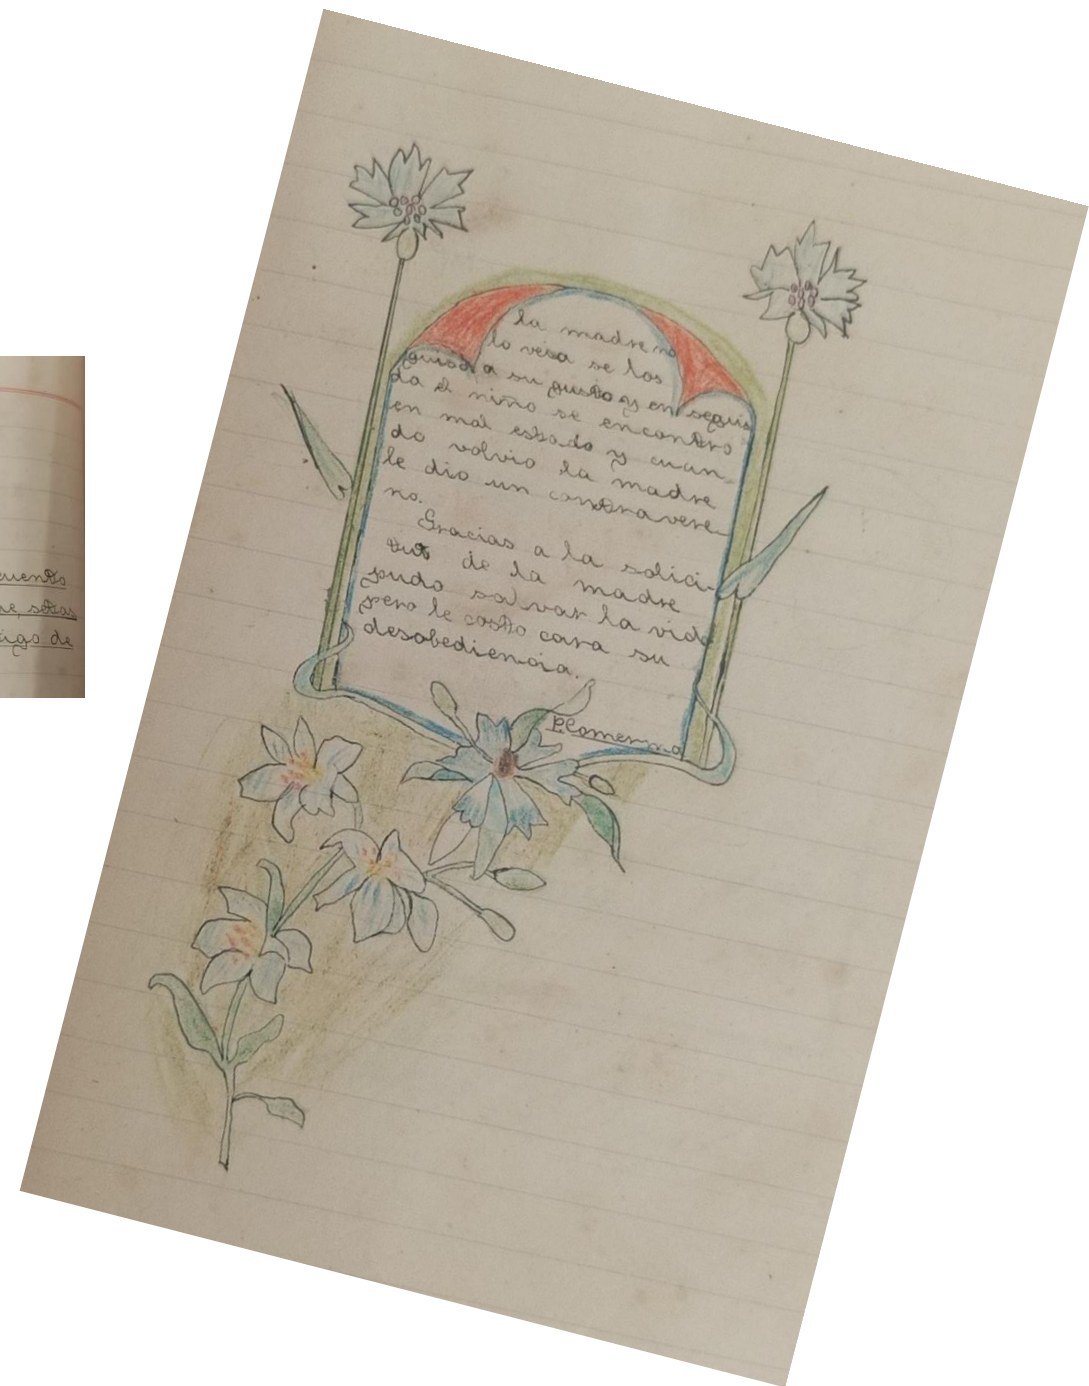 cuento
se, setas
igo de
la madre no
lo veia se los
guisó a su gusto y en segui
da el niño se encontro
en mal estado y cuan-
do volvio la madre
le dio un contravene-
no.
Gracias a la solici-
tut de la madre
pudo salvar la vida
pero le costo cara su
desobediencia.